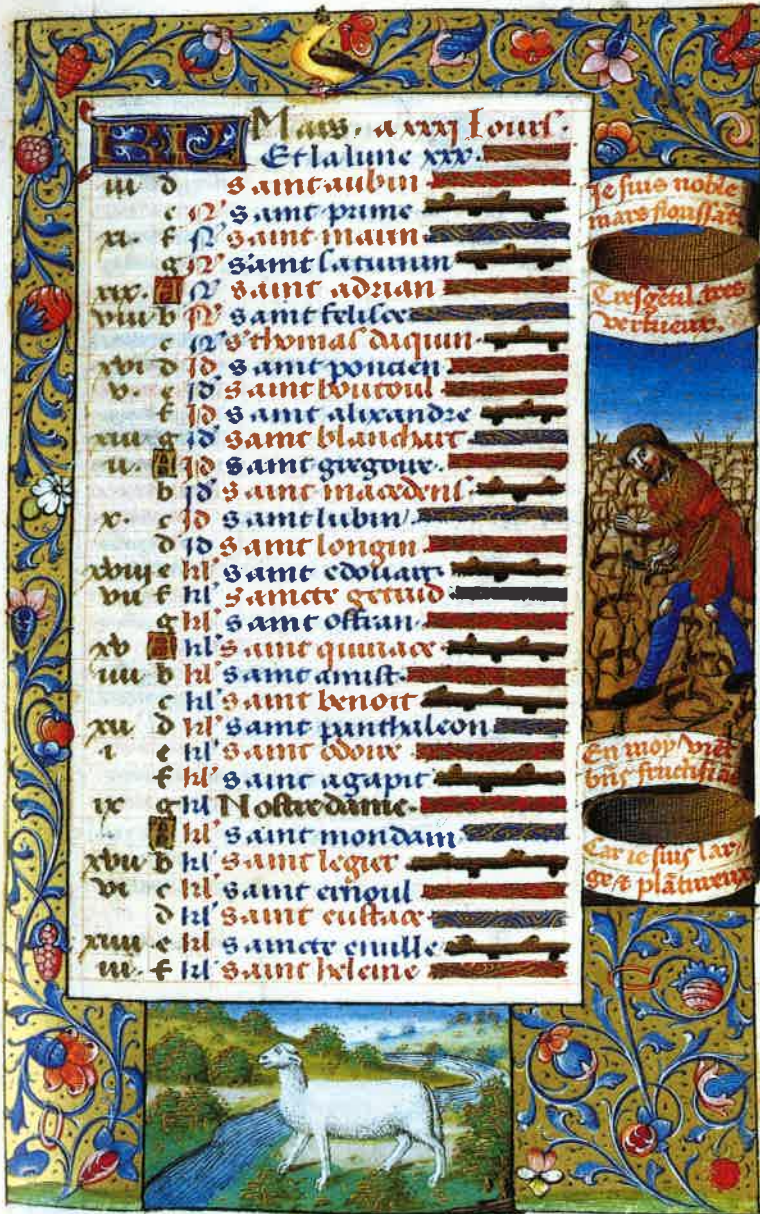 KL Mars. a xxxj Iours.
Et la lune xxx.
iii d saint aubin
e N saint prime
xi. f N saint maun
g N saint
xix. A N saint adrian
viii b N saint felise
c N s' thomas daquin
xvi d id saint poncien
v. e id saint boutoul
f id saint alixandre
xiii g id saint blanchart
ii. A id saint gregoire
b id saint macedens
x. c id saint lubin
d id saint longin
xviii e kl saint edouart
vii f kl saincte gertrud
g kl saint ostran
xv A kl saint quiriace
iiii b kl saint amist
c kl saint benoit
xii d kl saint panthaleon
i e kl saint odour
f kl saint agapit
ix g kl Nostre dame
A kl saint mondain
xvii b kl saint legier
vi c kl saint ernoul
d kl saint eustace
xiiii e kl saincte enuille
iii f kl saint heleine
Je suis noble
mars
Tresgētil tres
vertueux.
En moy viēt
fructifiāt
Car ie suis lar-
ge & plātureux